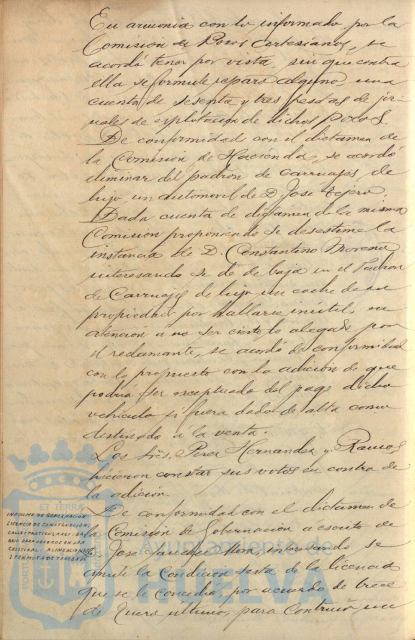 En armonia con lo informado por la
Comision de Pozos Artesianos, se
acordó tener por vista, sin que contra
ella se formule reparo alguno, una
cuenta de sesenta y tres pesetas de jor-
nales de explotacion de dichos Pozos.
De conformidad con el dictamen de
la Comision de Hacienda, se acordó
eliminar del padron de Carruajes de
lujo un automovil de D. José Tejero.
Dada cuenta de dictamen de la misma
Comision proponiendo se desestime la
instancia de D. Constantino Moreno
interesando se dé de baja en el Padron
de Carruajes de lujo un coche de su
propiedad por hallarse inutil, en
atencion a no ser cierto lo alegado por
el reclamante, se acordó de conformidad
con lo propuesto con la adicion de que
podria ser exceptuado del pago dicho
vehiculo si fuera dado de alta como
destinado á la venta.
Los Sres. Perez Hernandez y Ramos
hicieron constar sus votos en contra de
la adicion.
De conformidad con el dictamen de
la Comision de Gobernacion a escrito de
D. José Sanchez Mora interesando se
anule la condicion sesta de la licencia
que se le concedio, por acuerdo de trece
de Enero ultimo, para construir un
INFORME DE GOBERNACION
LICENCIA DE CONSTRUCCION
Ayuntamiento de
HUELVA